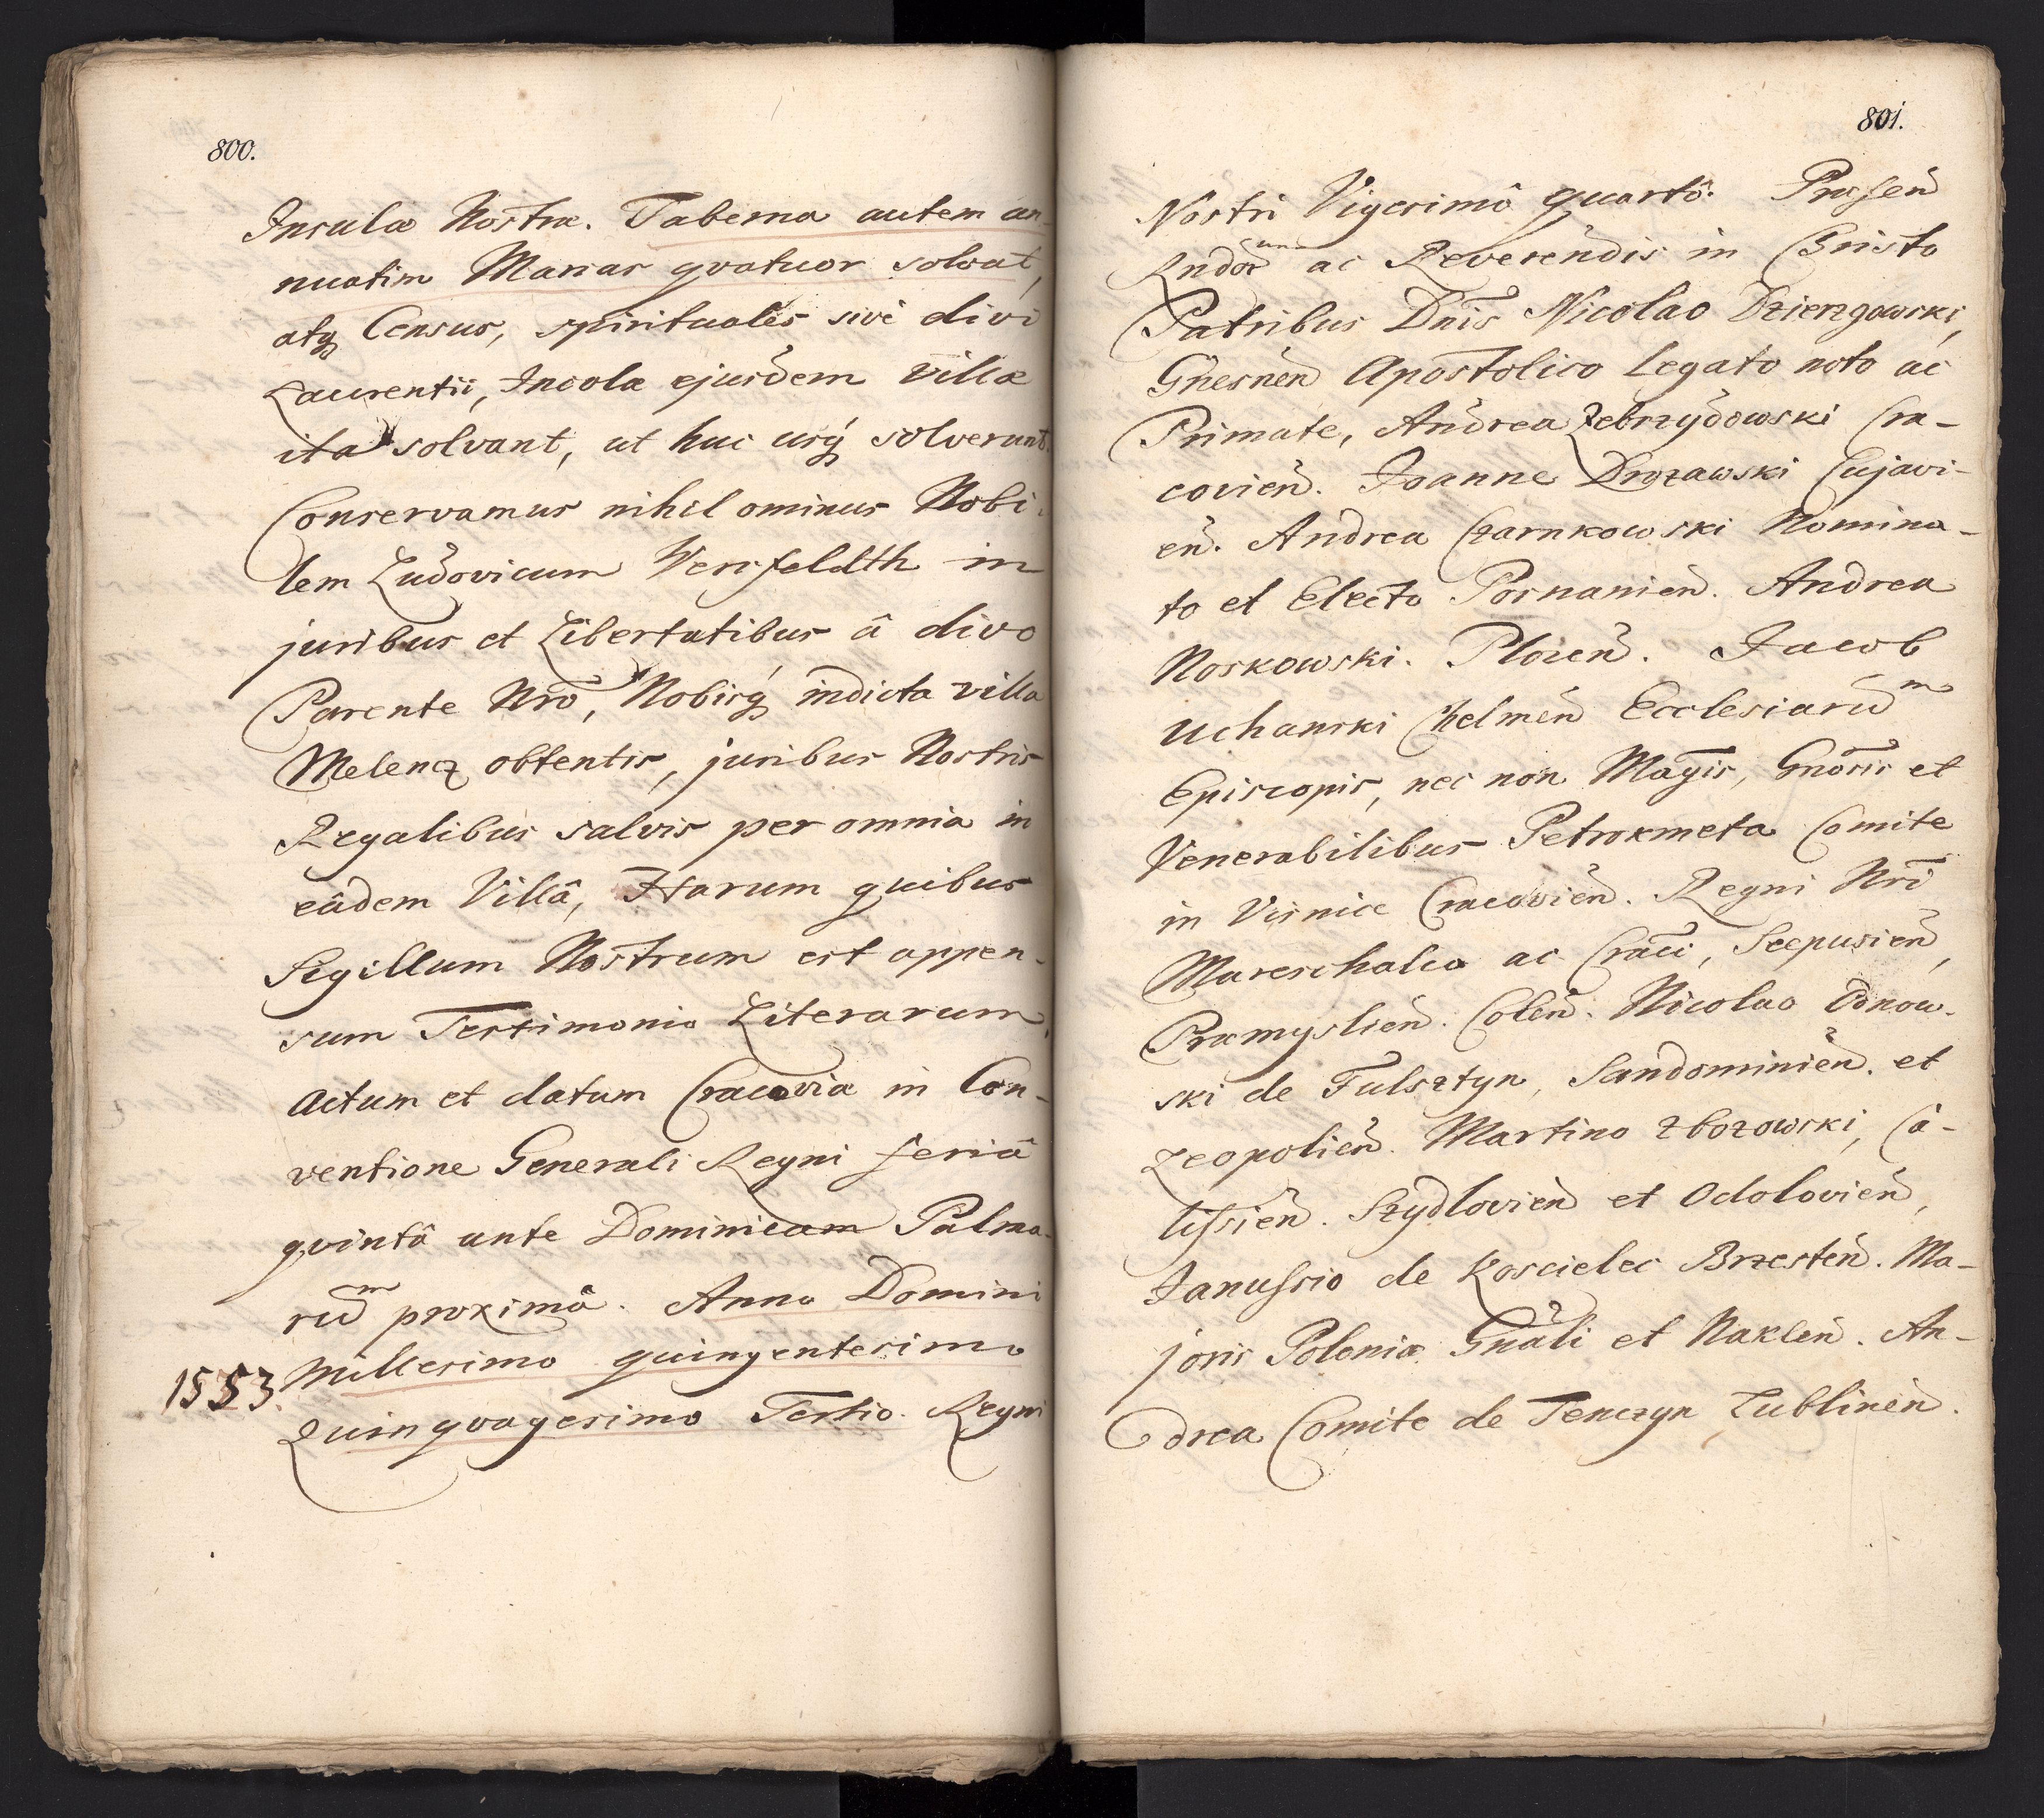 800.
Insulæ Nostræ. Taberna autem an-
nuatim Marcas qvatuor solvat,
atq Census, spirituales sive divi
Laurentii, Incolæ ejusdem Villæ
ita solvant, ut huc usq solverunt.
Conservamus nihil ominus Nobi-
lem Ludovicum Versfeldth in
juribus et Libertatibus â divo
Parente Nrō, Nobisq indicta villa
Melencz obtentis, juribus Nostris
Regalibus salvis per omnia in
eâdem Villâ, Harum quibus
Sigillum Nostrum est appen-
sum Testimonio Literarum.
Actum et datum Cracoviæ in Con-
ventione Generali Regni feriâ
qvintâ ante Dominicam Palma-
rum proximâ. Anno Domini
1553. Millesimo quingentesimo
Quinqvagesimo Tertio. Regni
801.
Nostri Vigesimô quartô. Præsen̄
Rndor um ac Reverendis in Christo
Patribus Dnīs Nicolao Dzierzgowski,
Gnesnen̄ Apostolico Legato noto ac
Primate, Andrea Zebrzydowski Cra-
covien̄. Joanne Drozawski Cujavi-
en̄. Andrea Czarnkowski Nomina-
to et Electo Posnanien̄. Andrea
Noskowski. Plocen̄. Jacob
Uchanski Chelmen̄ Ecclesiarum
Episcopis, nec non Magīs, Gnōsis et
Venerabilibus Petrokmeta Comite
in Visnice Cracovien̄. Regni Nrī
Mareschalco ac Cracī, Scepusien̄,
Præmyslien̄. Colen̄. Nicolao Odnow-
ski de Fulsztyn, Sandominien̄. et
Leopolien̄. Martino Zbozowski, Ca-
lissien̄. Szydlovien̄ et Odolovien̄,
Janussio de Koscielec Brzesten̄. Ma-
joris Poloniæ Gnāli et Naklen̄. An-
drea Comite de Tenczyn Lublinen̄.